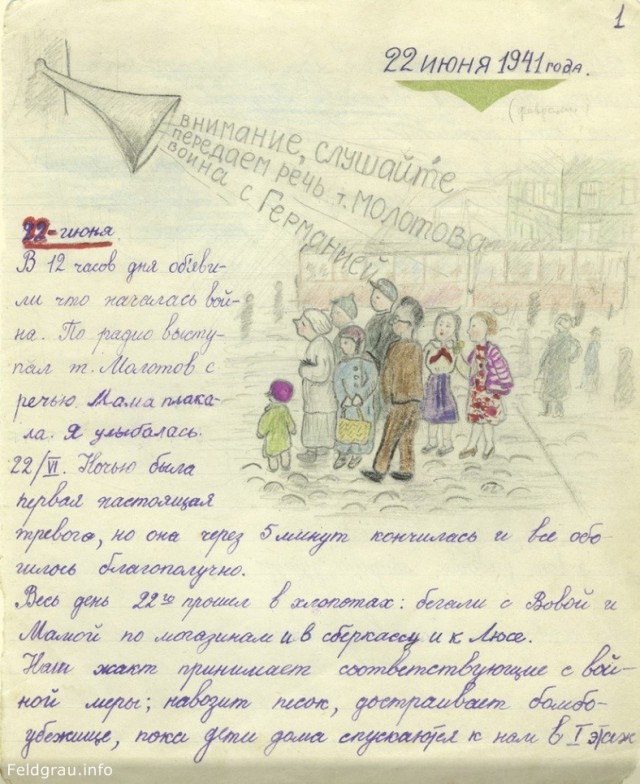 1
22 июня 1941 года.
(февраль)
Внимание, слушайте
передаем речь т. Молотова
война с Германией
22-июня
В 12 часов дня объяви-
ли что началась вой-
на. По радио высту-
пал т. Молотов с
речью. Мама плака-
ла. Я улыбалась.
22/VI. Ночью была
первая настоящая
тревога, но она через 5 минут кончилась и всё обо-
шлось благополучно.
Весь день 22го прошел в хлопотах: бегали с Вовой и
Мамой по магазинам и в сберкассу и к Люсе.
Наш жакт принимает соответствующие с вой-
ной меры; навозит песок, достраивает бомбо-
убежище, пока дети дома спускаются к нам в I этаж
Feldgrau.info